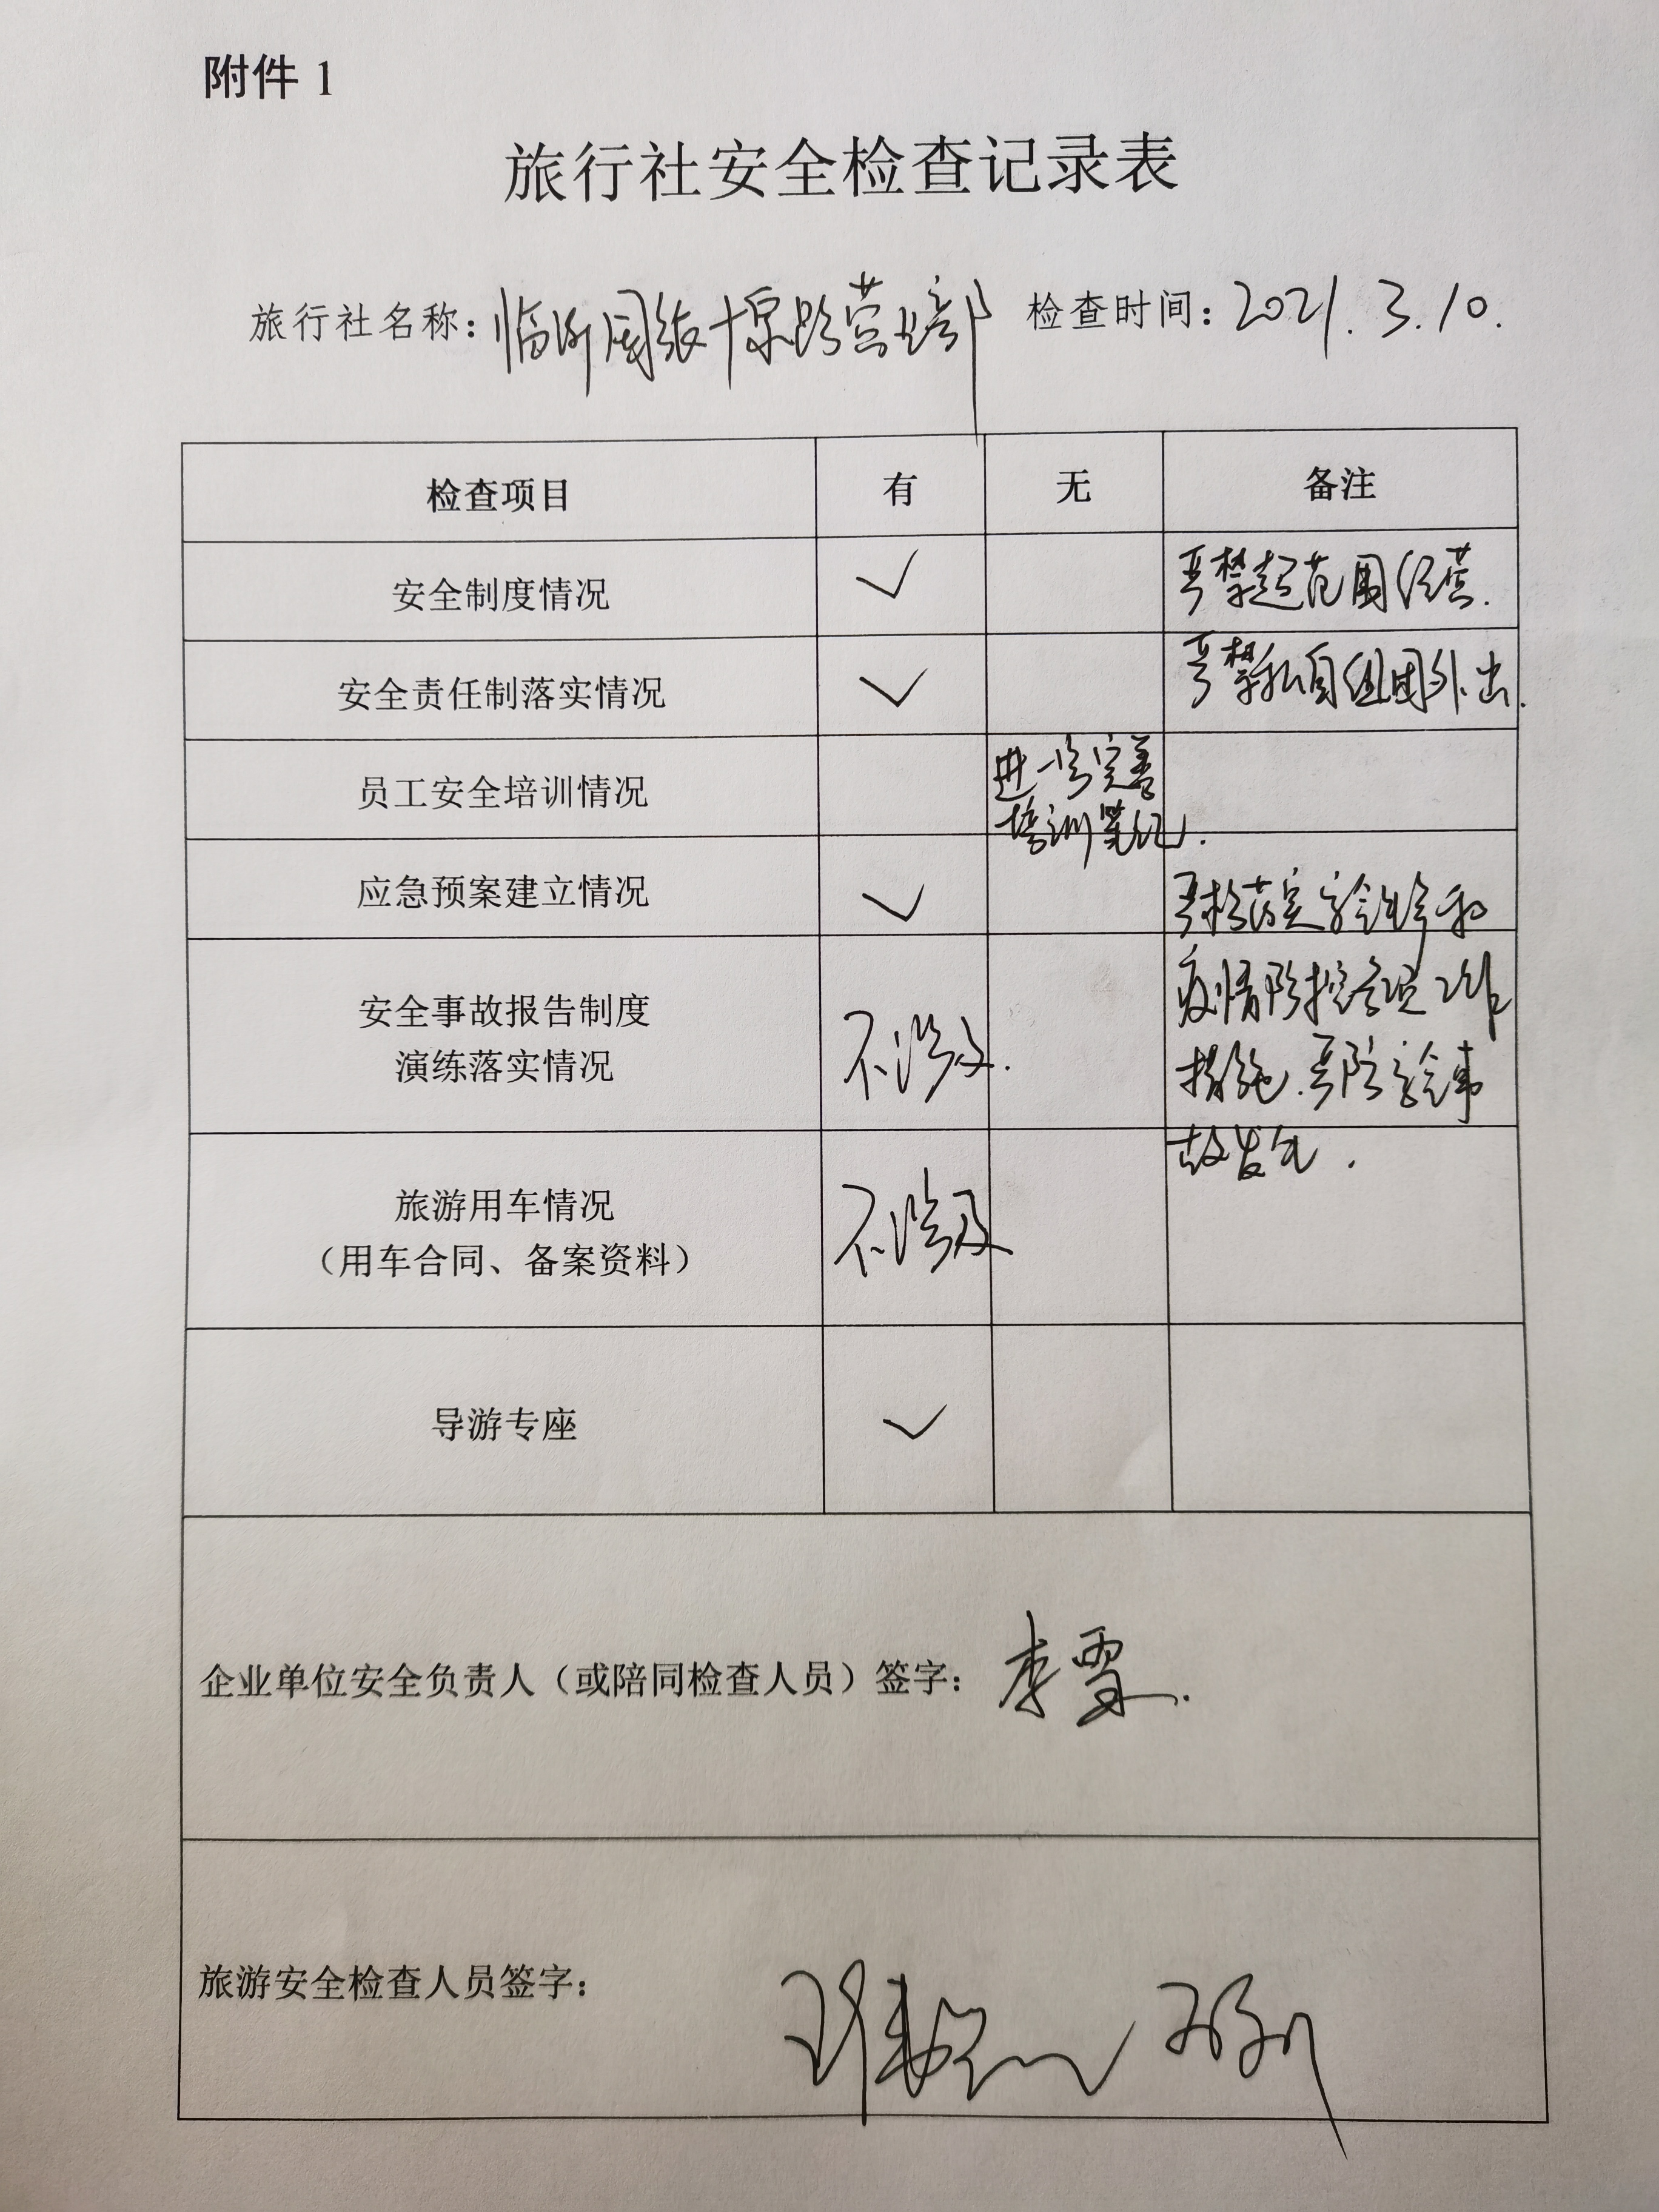 附件 1
旅行社安全检查记录表
旅行社名称: 临沂国旅 营业部 检查时间: 2021.3.10.
检查项目 有 无 备注
安全制度情况 ✓ 严禁超范围经营.
安全责任制落实情况 ✓ 严禁私自组团外出.
员工安全培训情况 进一步完善
培训笔记.
应急预案建立情况 ✓ 严格落实安全生产和
疫情防控各项工作
安全事故报告制度
演练落实情况 不涉及. 措施.严防安全事
故发生.
旅游用车情况 不涉及
（用车合同、备案资料）
导游专座 ✓
企业单位安全负责人（或陪同检查人员）签字: 李雪.
旅游安全检查人员签字: